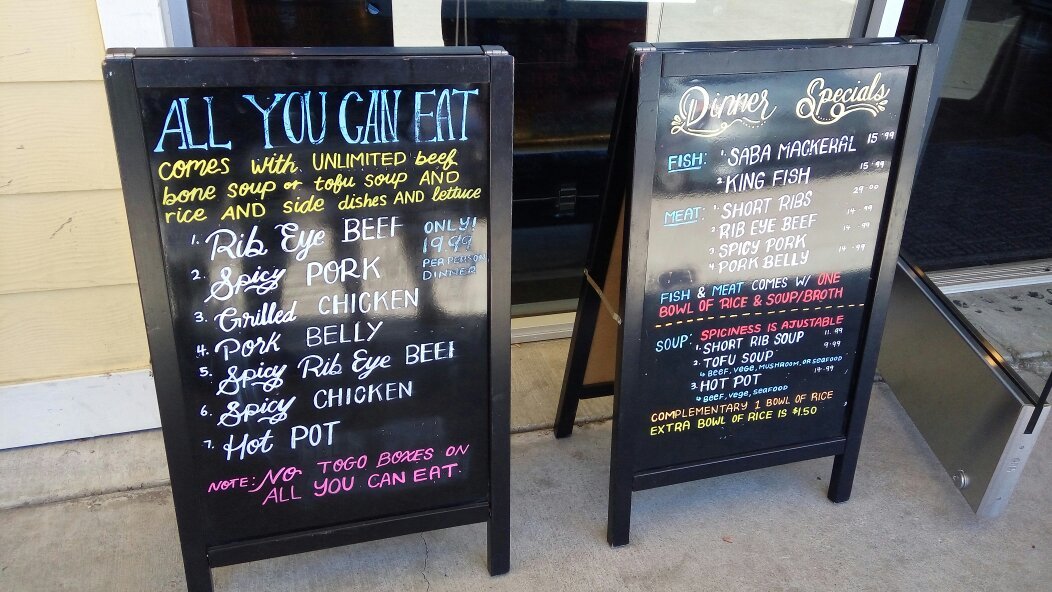 ALL YOU CAN EAT
comes with UNLIMITED beef
bone soup or tofu soup AND
rice AND side dishes AND lettuce
1. Rib Eye BEEF
ONLY!
19.99
PER PERSON,
DINNER
2. Spicy PORK
3. Grilled CHICKEN
4. Pork BELLY
5. Spicy Rib Eye BEEF
6. Spicy CHICKEN
7. Hot POT
NOTE: NO TOGO BOXES ON
ALL YOU CAN EAT
Dinner Specials
FISH: 1. SABA MACKERAL 15.99
2. KING FISH 15.99
MEAT: 1. SHORT RIBS 29.00
2. RIB EYE BEEF
3. SPICY PORK
4. PORK BELLY
FISH & MEAT COMES W/ ONE
BOWL OF RICE & SOUP/BROTH
SPICINESS IS AJUSTABLE
SOUP: 1. SHORT RIB SOUP 11.99
2. TOFU SOUP 9.99
↳ BEEF, VEGE, MUSHROOM, OR SEAFOOD
3. HOT POT
↳ BEEF, VEGE, SEAFOOD
COMPLEMENTARY 1 BOWL OF RICE
EXTRA BOWL OF RICE IS $1.50